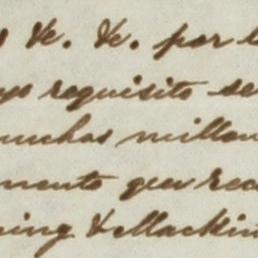 &c. &c. por l
yo requisito se
muchos millon
mento que rec
ing & Mackin